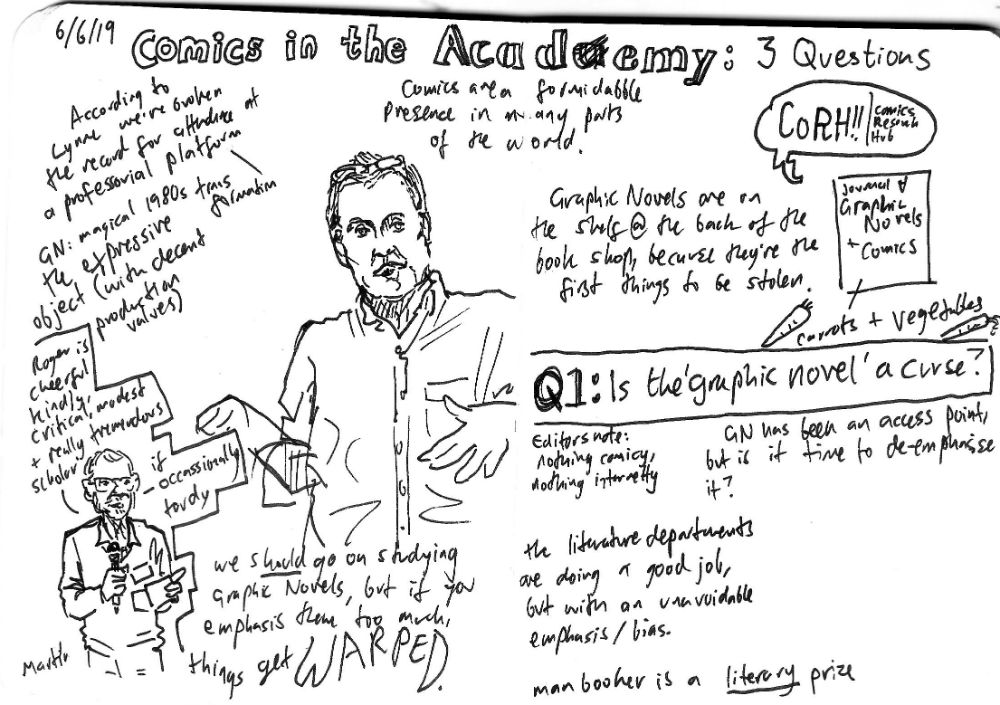 6/6/19
Comics in the Academy: 3 Questions
According to
Lynne we've broken
the record for attendance at
a professorial platform
GN: magical 1980s trans
formation
the expressive
object (with decent
production
values)
Comics are a formidabble
presence in many parts
of the world.
CoRH!!
Comics
Research
Hub
Journal of
Graphic
Novels
+ Comics
Graphic Novels are on
the shelf @ the back of the
book shop, because they're the
first things to be stolen.
carrots + vegetables
Roger is
cheerful
kindly,
critical, modest
+ really tremendous
scholar
if
occassionally
tardy
we should go on studying
Graphic Novels, but if you
emphasis them too much,
things get WARPED.
Q1: Is the 'graphic novel' a curse?
Editors note:
nothing comicy,
nothing internetty
GN has been an access point,
but is it time to de-emphasise
it?
the literature departments
are doing a good job,
but with an unavoidable
emphasis/bias.
man booker is a literary prize